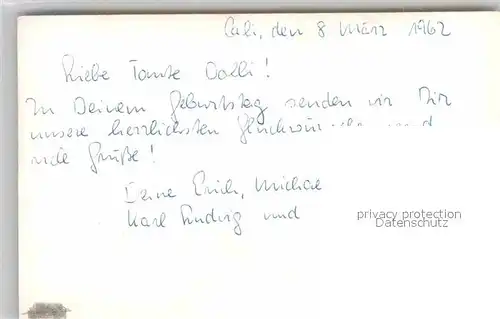 Cali, den 8 März 1962
Liebe Tante Dolli!
Zu Deinem Geburtstag senden wir Dir
unsere herzlichsten
viele Grüße!
Deine Erich, Michael
Karl Ludwig und
privacy protection
Datenschutz